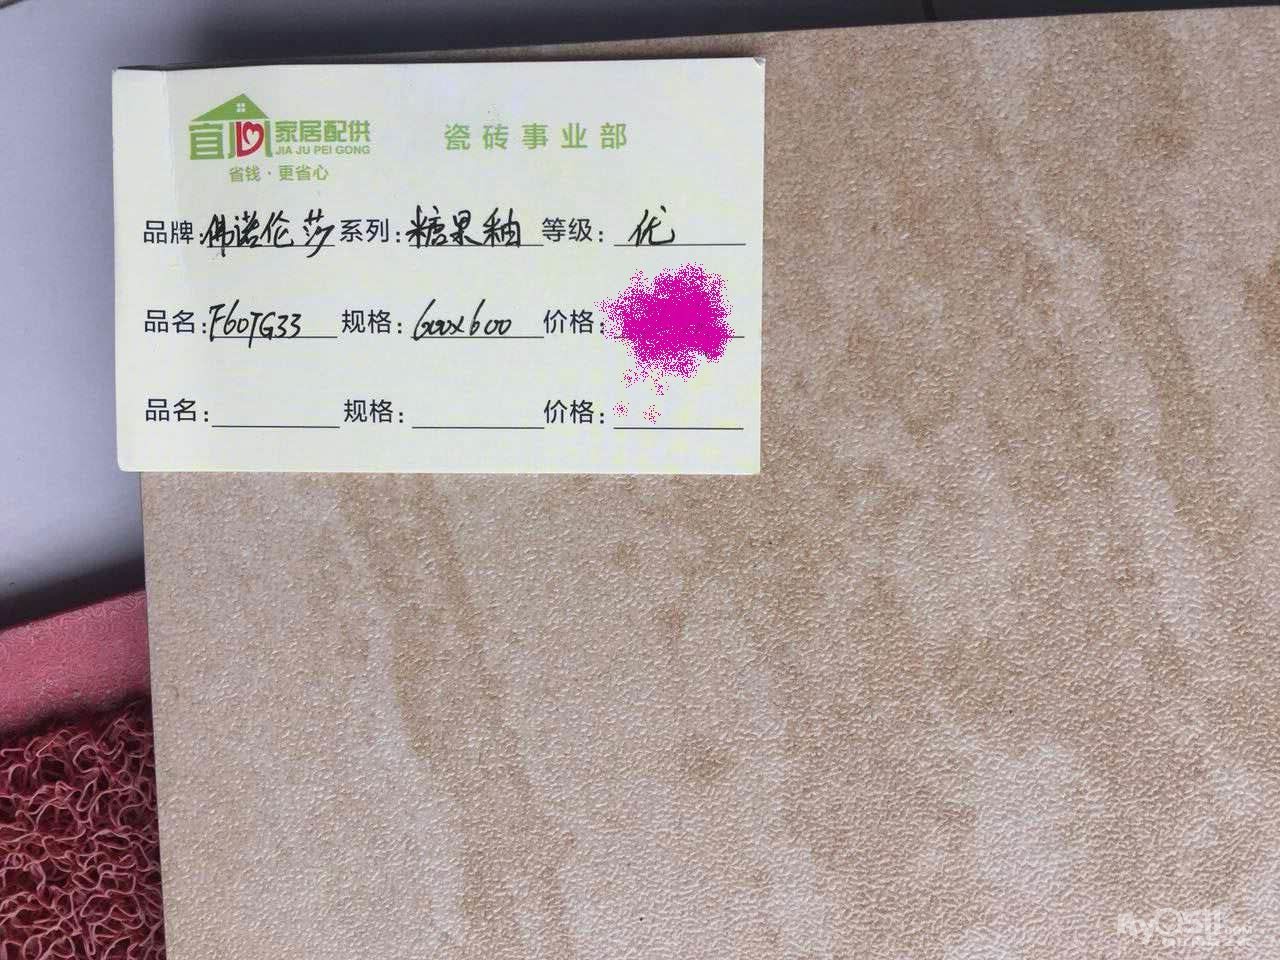 宜心家居配供
JIA JU PEI GONG
省钱·更省心
瓷砖事业部
品牌:佛诺伦莎 系列:糖果釉 等级:优
品名:F60TG33 规格:600x600 价格:
品名: 规格: 价格: